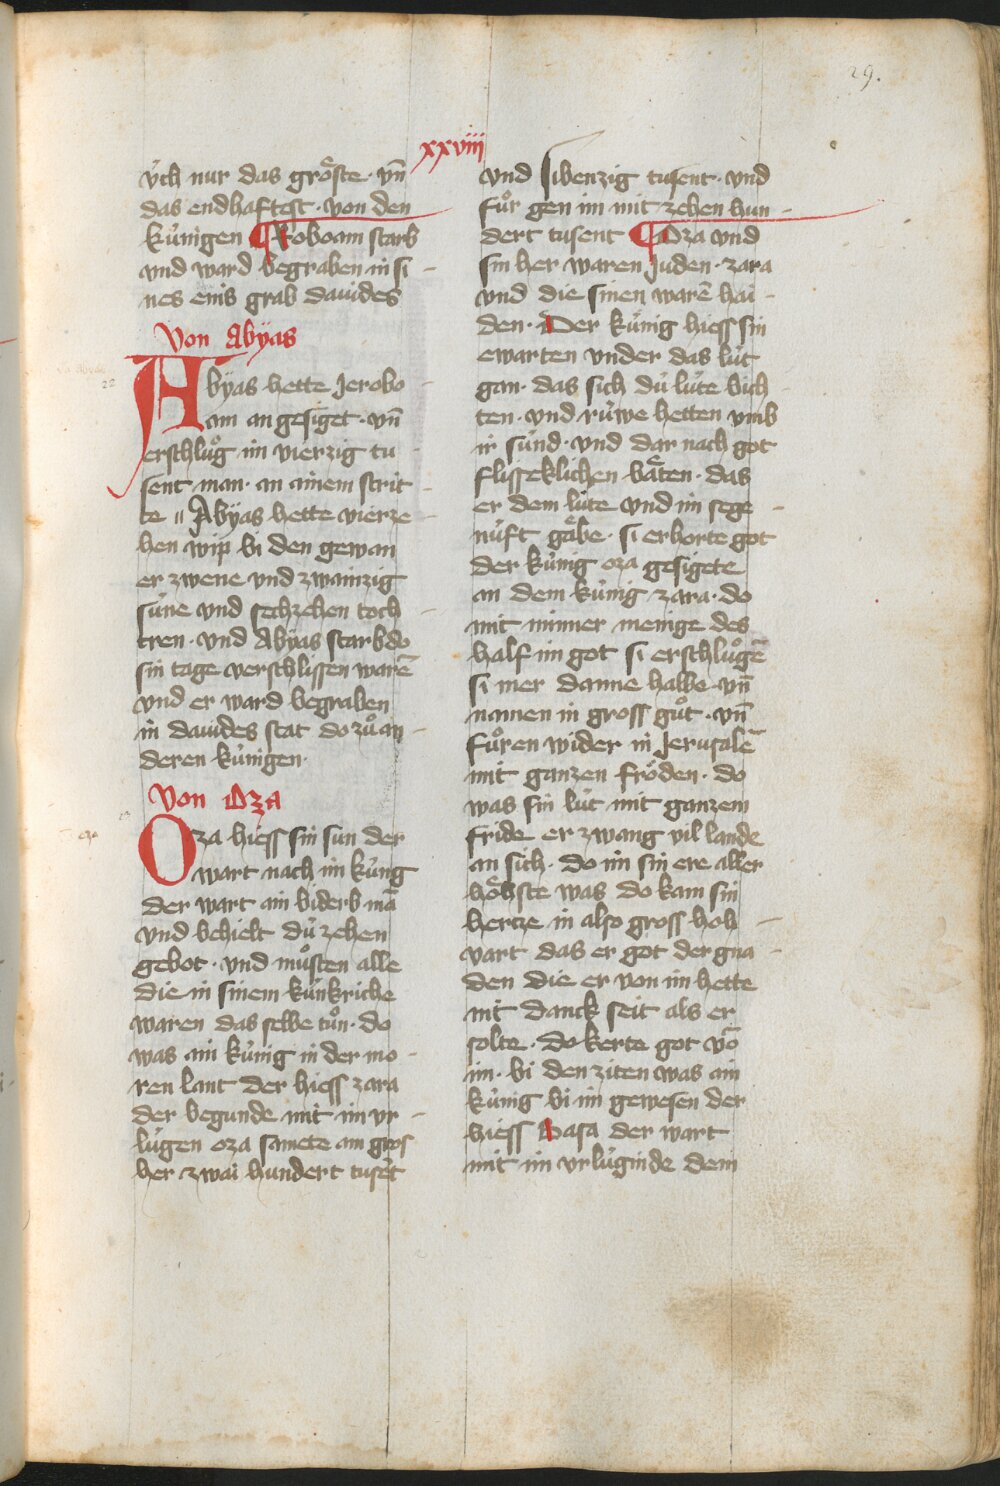 29.
xxviii
v̓ch nur das groͤste · vn̄
das endhaftest · von den
kúnigen ¶ Roboam starb
vnd ward begraben in si
nes enis grab dauides
Von Abÿas
Abÿas hette Jerobo
am an gesiget · vn̄
erschluͦg im vierzig tu
sent man · an ainem strit
te ‖ Abÿas hette vierze
hen wip bi den gewan
er zwene vnd zwainzig
súne vnd sechzehen toch
tren · vnd Abÿas starb do
sin tage verschlissen warē
vnd er ward begraben
in dauides stat do zuͦ an
deren kúnigen ·
Von Oza
Oza hiess sin sun der
wart nach im kúng
der wart ain biderb mā
vnd behielt dú zehen
gebot · vnd muͦsten alle
die in sinem kúnkriche
waren das selbe tuͦn · do
was ain kúnig in der mo
ren lant der hiess zara
der begunde mit im vr
lúgen oza samete ain gros
her zwai hundert tusēt
vnd sibenzig tusent · vnd
fuͦr gen im mit zehen hun
dert tusent ¶ Oza vnd
sin her waren Juden · zara
vnd die sinen warē hai
den · Der kúnig hiess sin
ewarten vnder das lút
gan · das sich dú lúte bich
ten · vnd rúwe hetten vmb
ir súnd · vnd dar nach got
flisseklichen baͤten · das
er dem lúte vnd im sege
núft gaͤbe · si erhorte got
der kúnig oza gesigete
an dem kúnig zara · do
mit minner menge des
half im got si erschluͦgē
si mer danne halbe · vn̄
namen in gross guͦt · vn̄
fuͦren wider in Jerusalē
mit ganzen froͤden · do
was sin lút mit ganzem
fride er zwang vil lande
an sich · do im sin ere aller
hoͤhste was do kam sin
hertze in also gross hoh
vart das er got der gna
den die er von im hette
nit danck seit als er
solte · do kerte got vō
im · bi den ziten was ain
kúnig bi im gewesen der
hiess Basa der wart
mit im vrlúginde dem